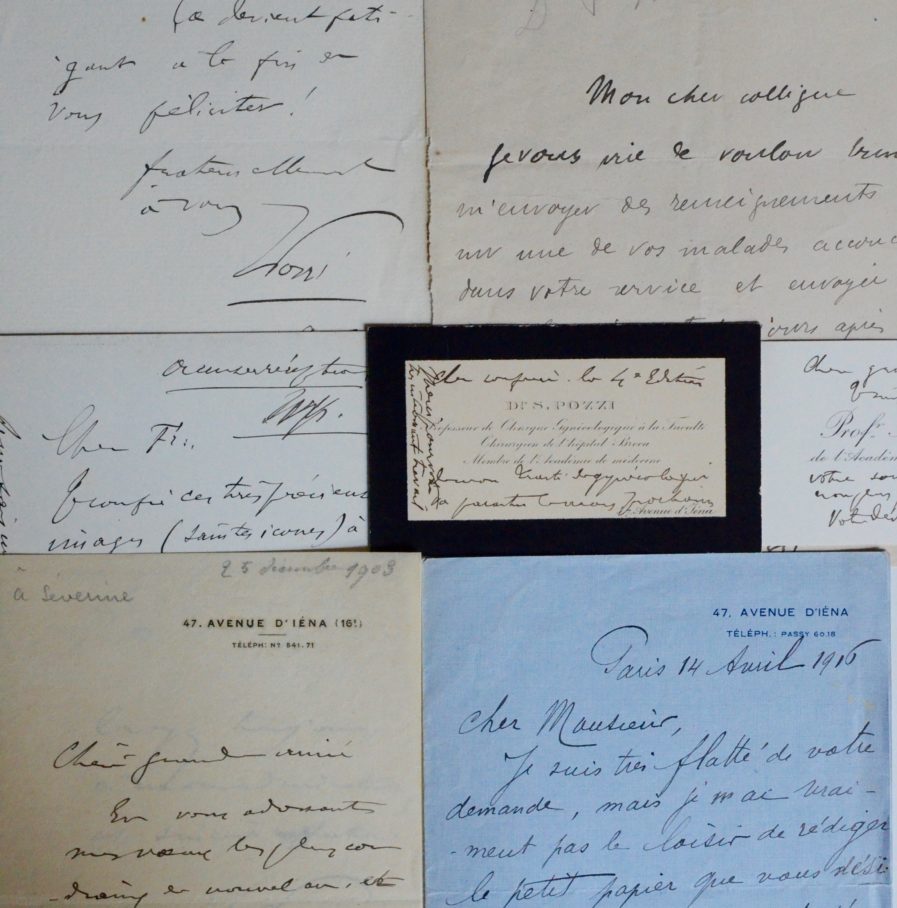 Ça devient fati-
gant à la fin de
vous féliciter!
fraternellement
à vous
Pozzi
Mon cher collègue
je vous prie de vouloir bien
m'envoyer des renseignements
sur une de vos malades accouc
dans votre service et envoyée
jours après
Cher Fr.,
Je confie ces très précieuses
images (saintes icones) à
cher confrère. la 4e Edition
Dr S. POZZI
Professeur de Clinique Gynécologique à la Faculté
Chirurgien de l'hôpital Broca
Membre de l'Académie de médecine
de mon Traité de gynécologie
Avenue d'Iéna
Merci pour votre
très intéressant travail
Cher
Profr.
de l'Académ
votre
Votre dé
25 décembre 1903
à Séverine
47, AVENUE D'IÉNA (16e)
TÉLÉPH: No 541.71
Chère grande amie
En vous adressant
mes vœux les plus cor
-diaux de nouvel an, et
47, AVENUE D'IÉNA
TÉLÉPH.: PASSY 60.18
Paris 14 Avril 1916
Cher Monsieur,
Je suis très flatté de votre
demande, mais je n'ai vrai-
-ment pas le loisir de rédiger
le petit papier que vous dési